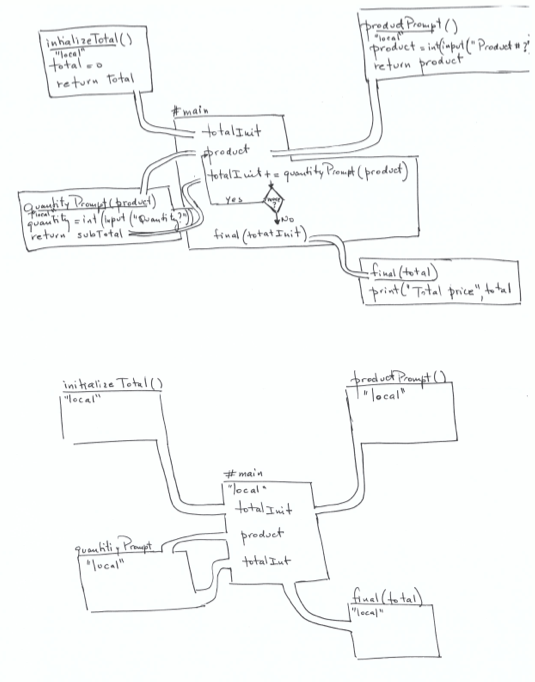 initializeTotal()
"local"
total = 0
return Total
productPrompt()
"local"
product = int(input("Product #?"
return product
#main
totalInit
product
totalInit += quantityPrompt(product)
yes
more
?
No
final(totalInit)
QuantityPrompt(product)
"local"
quantity = int(Input("Quantity?"))
return subTotal
final(total)
print("Total price", total
initialize Total()
"local"
productPrompt()
"local"
#main
"local"
totalInit
product
totalInt
quantityPrompt
"local"
final(total)
"local"